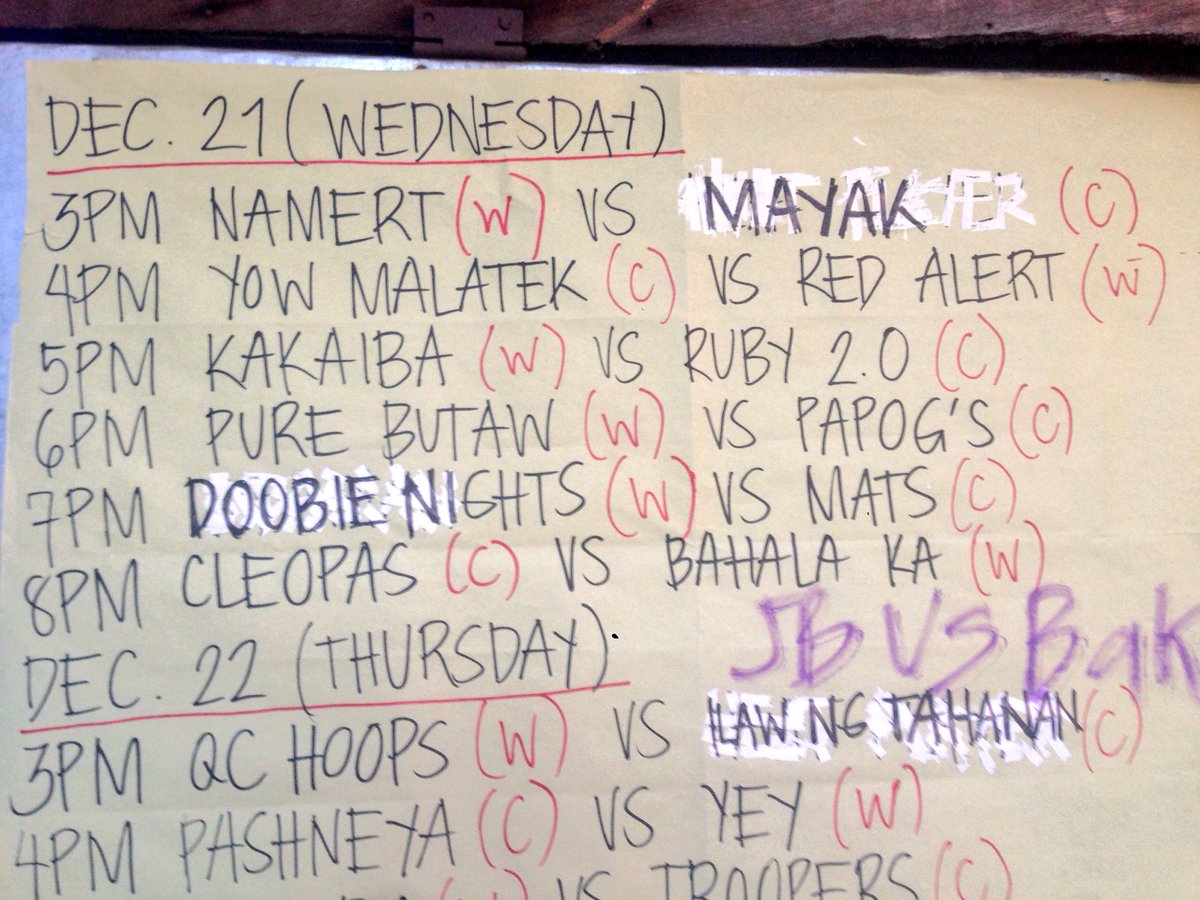 DEC. 21 (WEDNESDAY)
3PM NAMERT (W) VS MAYAK (C)
4PM YOW MALATEK (C) VS RED ALERT (W)
5PM KAKAIBA (W) VS RUBY 2.0 (C)
6PM PURE BUTAW (W) VS PAPOG'S (C)
7PM DOOBIE NIGHTS (W) VS MATS (C)
8PM CLEOPAS (C) VS BAHALA KA (W)
JB VS Bak
DEC. 22 (THURSDAY)
3PM QC HOOPS (W) VS ILAW NG TAHANAN (C)
4PM PASHNEYA (C) VS YEY (W)
VS TROOPERS (C)